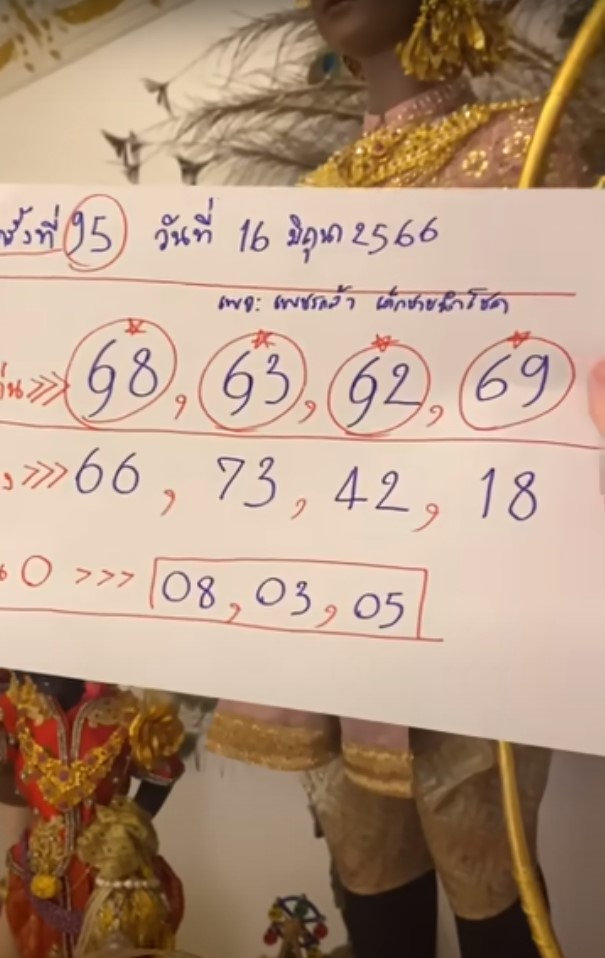 รั้งที่ 95 วันที่ 16 มิถุนา 2566
เพจ: เพชรกล้า เด็กชายนำโชค
่น >>> 98, 93, 92, 69
ง >>> 66, 73, 42, 18
0 >>> 08, 03, 05